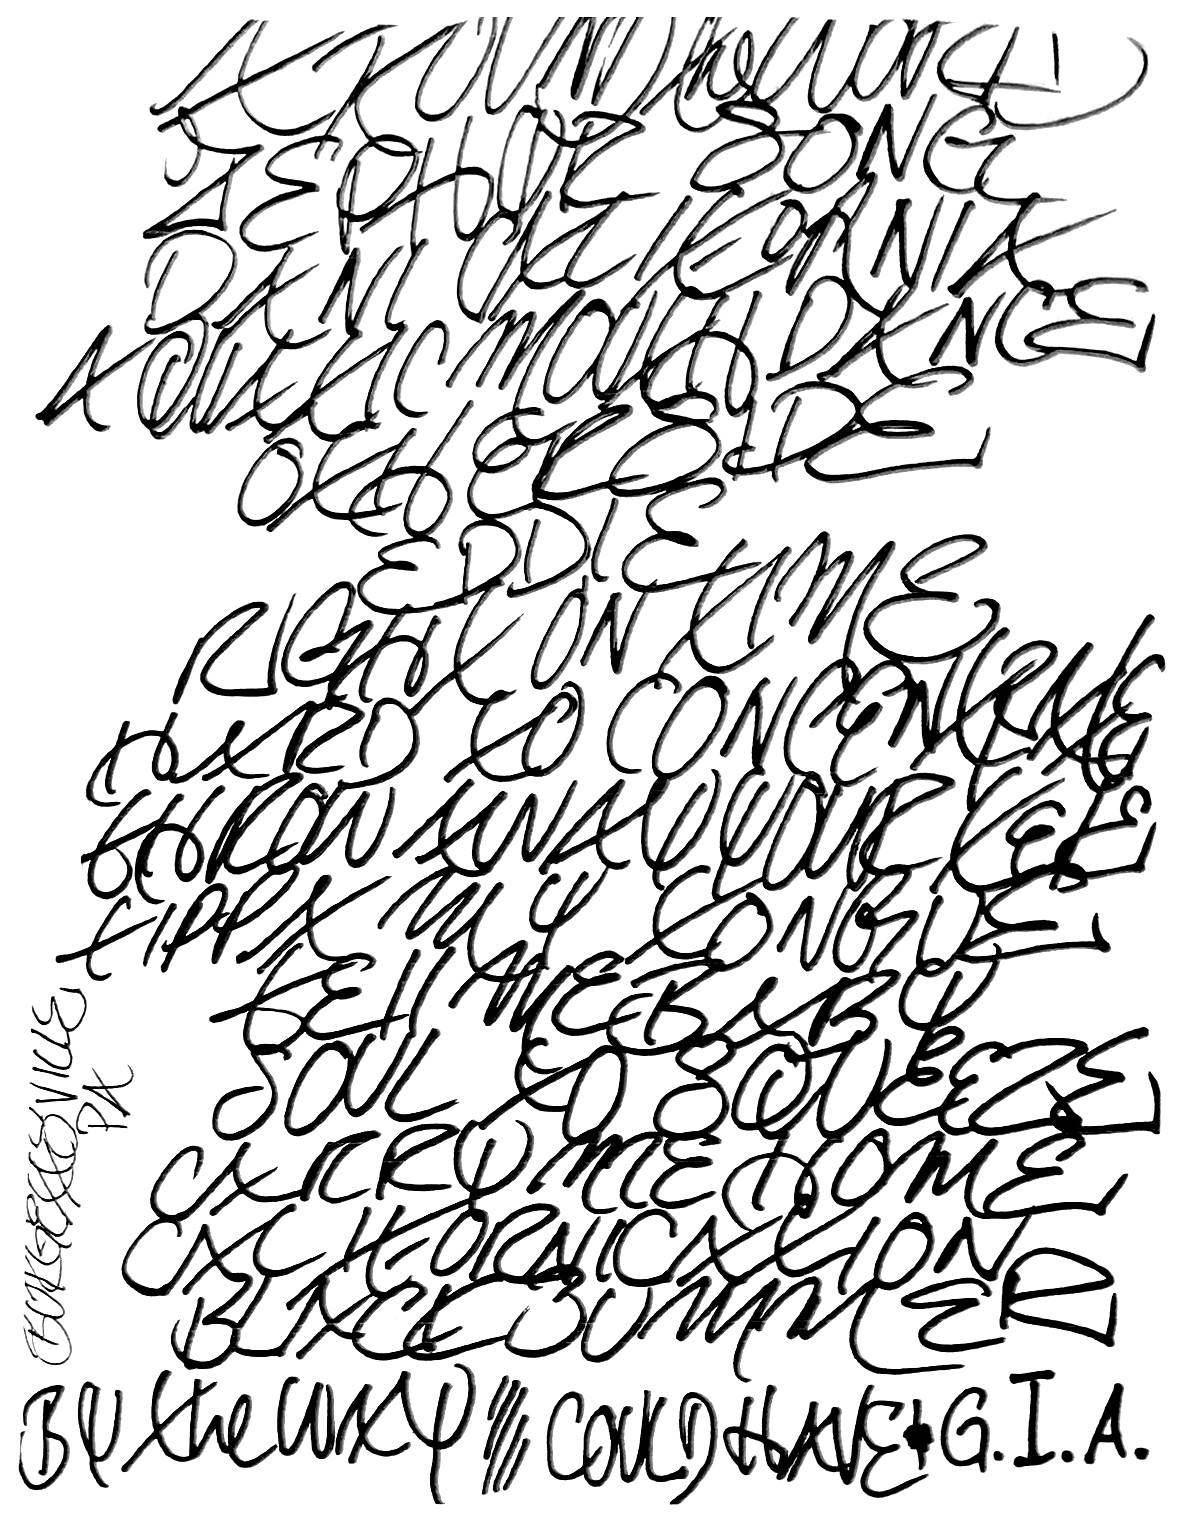 AROUND the WORLD
ZEPHYR SONG
DANI CALIFORNIA
AQUATIC MOUTH DANCE
OTHERSIDE
EDDIE
RIGHT ON TIME
HARD TO CONCENTRATE
THROW AWAY YOUR TELE
TIPPA MY TONGUE
TELL ME BABY
SOUL TO SQUEEZE
CARRY ME HOME
CALIFORNICATION
BLACK SUMMER
BY the WAY //// COULD HAVE + G.I.A.
BURGETTSVILLE
PA